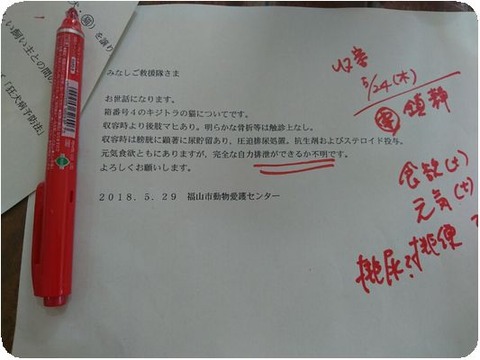 い飼い主との間の
く「狂犬病予防法」
みなしご救援隊さま
お世話になります。
箱番号4のキジトラの猫についてです。
収容時より後肢マヒあり。明らかな骨折等は触診上なし。
収容時は膀胱に顕著に尿貯留あり、圧迫排尿処置。抗生剤およびステロイド投与。
元気食欲ともにありますが、完全な自力排泄ができるか不明です。
よろしくお願いします。
2018.5.29 福山市動物愛護センター
収容
5/24(木)
食欲(+)
元気(+)
排尿?排便?